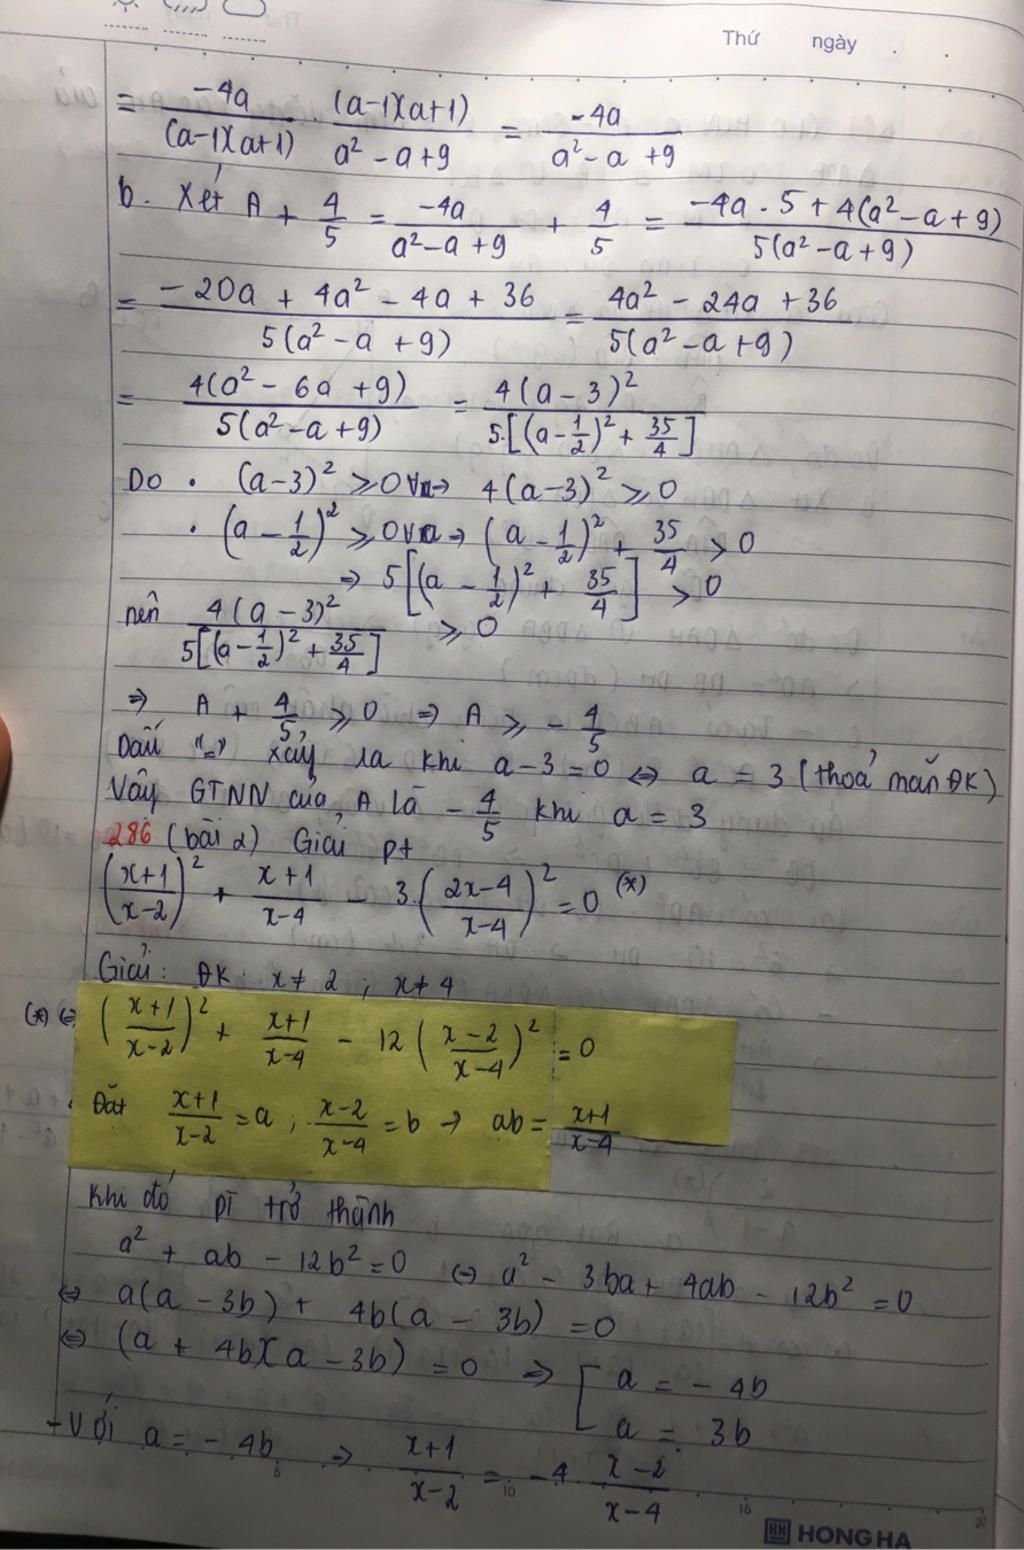 Thứ ngày . .
= -4a/((a-1)(a+1)) (a-1)(a+1)/(a² - a + 9) = -4a/(a² - a + 9)
b. Xét A + 4/5 = -4a/(a² - a + 9) + 4/5 = (-4a . 5 + 4(a² - a + 9))/(5(a² - a + 9))
= (-20a + 4a² - 4a + 36)/(5(a² - a + 9)) = (4a² - 24a + 36)/(5(a² - a + 9))
= 4(a² - 6a + 9)/(5(a² - a + 9)) = 4(a - 3)²/(5.[(a - 1/2)² + 35/4])
Do . (a - 3)² ⩾ 0 ∀a → 4(a - 3)² ⩾ 0
. (a - 1/2)² ⩾ 0 ∀a → (a - 1/2)² + 35/4 > 0
⇒ 5[(a - 1/2)² + 35/4] > 0
nên 4(a - 3)²/(5[(a - 1/2)² + 35/4]) ⩾ 0
⇒ A + 4/5 ⩾ 0 ⇒ A ⩾ - 4/5
Dấu "=" xảy ra khi a - 3 = 0 ⇔ a = 3 (thoả mãn ĐK)
Vậy GTNN của A là - 4/5 khi a = 3
286 (bài 2) Giải pt
((x+1)/(x-2))² + (x+1)/(x-4) - 3.((2x-4)/(x-4))² = 0 (*)
Giải: ĐK: x ≠ 2 ; x ≠ 4
(*) ⇔ ((x+1)/(x-2))² + (x+1)/(x-4) - 12((x-2)/(x-4))² = 0
Đặt (x+1)/(x-2) = a ; (x-2)/(x-4) = b → ab = (x+1)/(x-4)
Khi đó pt trở thành
a² + ab - 12b² = 0 ⇔ a² - 3ba + 4ab - 12b² = 0
⇔ a(a - 3b) + 4b(a - 3b) = 0
⇔ (a + 4b)(a - 3b) = 0 ⇒ [ a = - 4b
a = 3b
+ Với a = - 4b ⇒ (x+1)/(x-2) = -4 . (x-2)/(x-4)
5 10 15 20
HH HONG HA